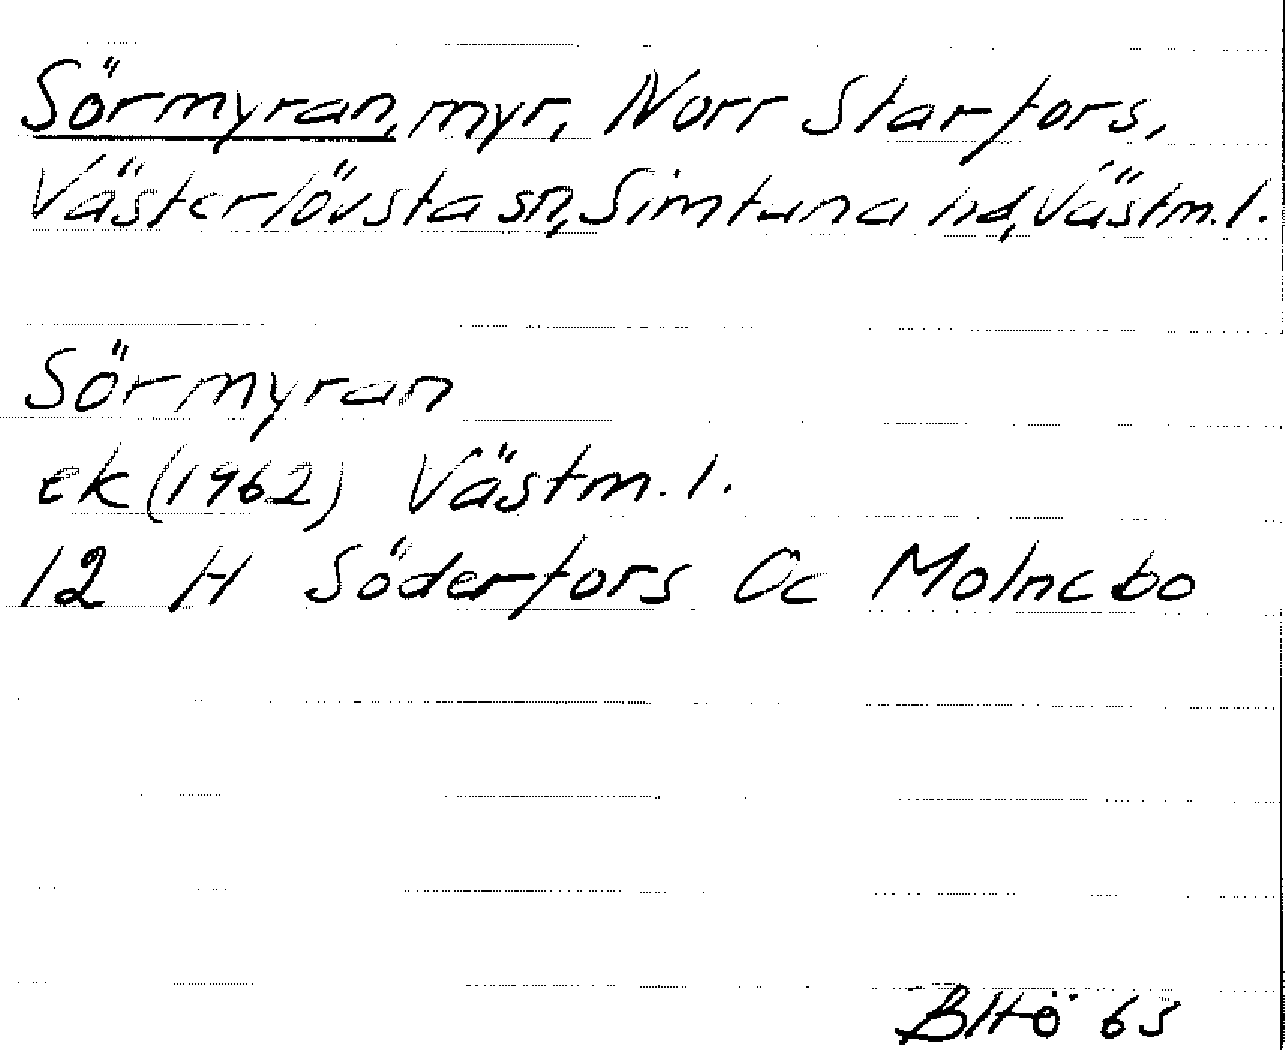 Sörmyran, myr, Norr Starfors,
Västerlövsta sn, Simtuna hd, Västm.l.
Sörmyran
ek (1962) Västm.l.
12 H Söderfors Oc Molnebo
BHÖ 63